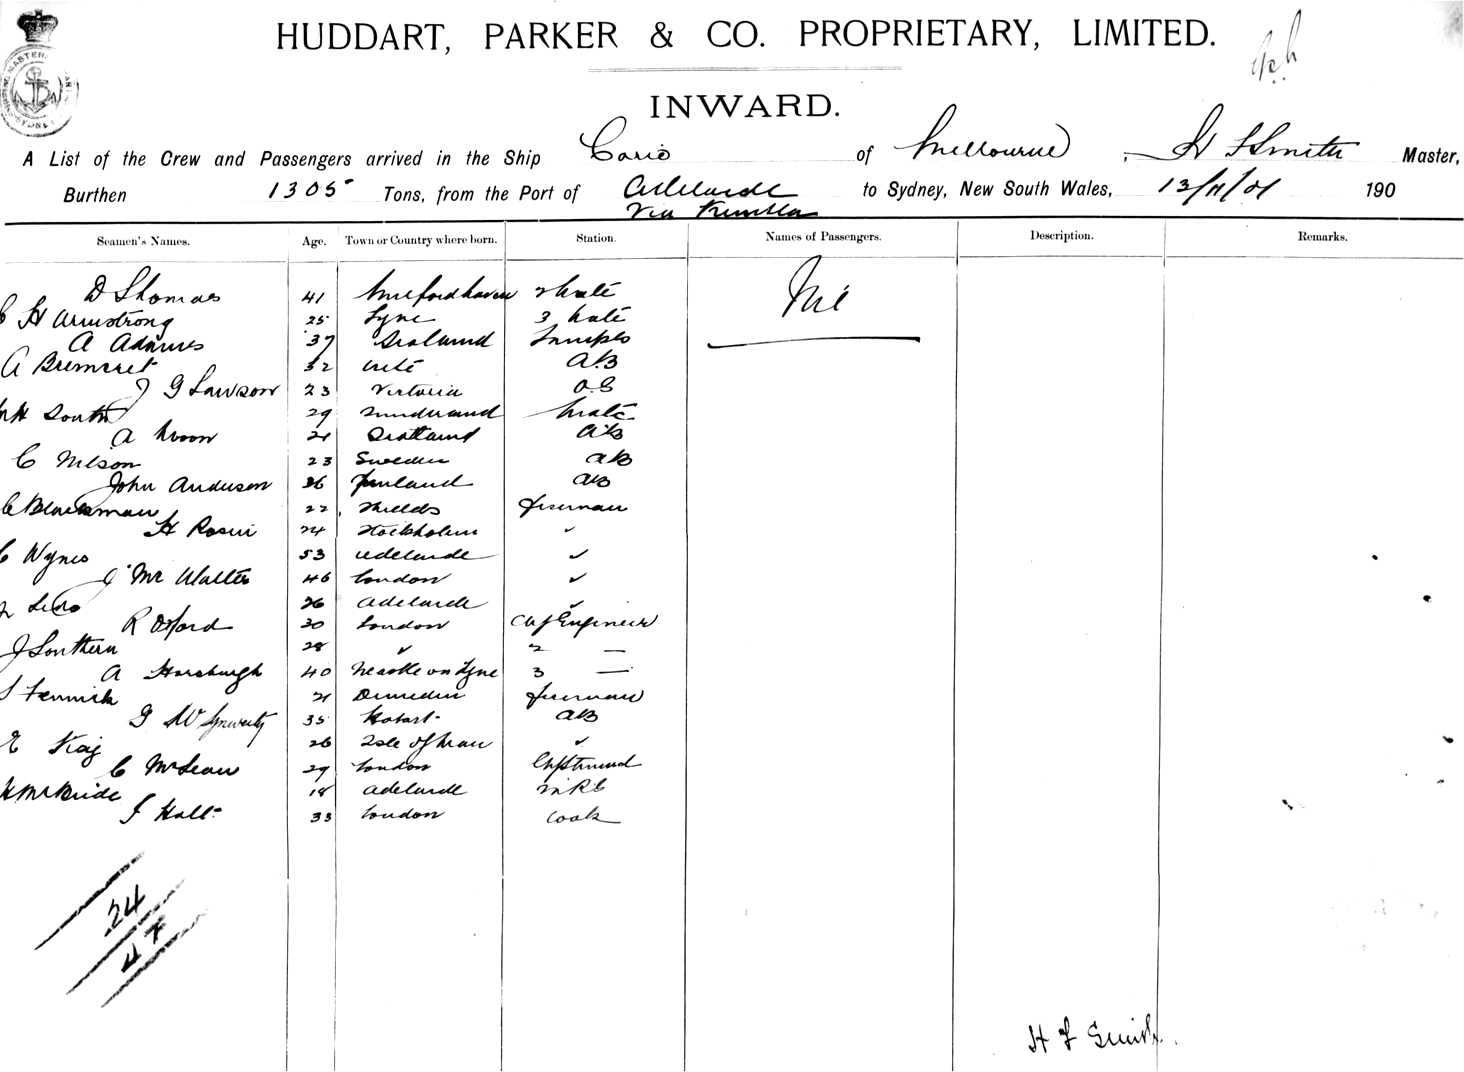 HUDDART, PARKER & CO. PROPRIETARY, LIMITED.
INWARD.
A List of the Crew and Passengers arrived in the Ship Corio of Melbourne, H F Smith Master,
Burthen 1305 Tons, from the Port of Adelaide to Sydney, New South Wales, 13/11/01 190
Via Kembla
Seamen's Names. Age. Town or Country where born. Station. Names of Passengers. Description. Remarks.
D Thomas 41 Milfordhaven 2 Mate Nil
C H Armstrong 25 Tyne 3 Mate
A Adams 37 Scotland Lamps
A 32 AB
J G Lawson 23 Victoria O.S
South 29 Mate
A Moon 21 Scotland AB
C Nelson 23 Sweden AB
John Anderson 36 Finland AB
C Blacksman 22 Shields Fireman
H Rosin 24 Stockholm ✓
C Wynes 53 Adelaide ✓
J McWalter 46 London ✓
26 Adelaide ✓
R Oxford 30 London Chf Engineer
J Southern 28 ✓ 2 —
A Horsburgh 40 Neastle on Tyne 3 —
Fennick 21 Dunedin Fireman
G W 35 Hobart AB
E 26 Isle of Man ✓
C McLean 29 London Chf Steward
McBride 18 Adelaide
J Hall 33 London Cook
24
47
H F Smith